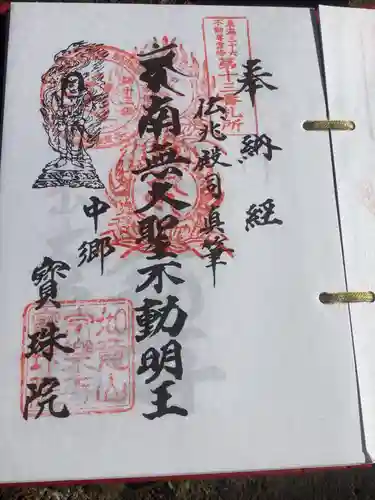 奉納経
東海三十六
不動尊霊場
第十三番札所
兆殿司真筆
南無大聖不動明王
中郷
寳珠院